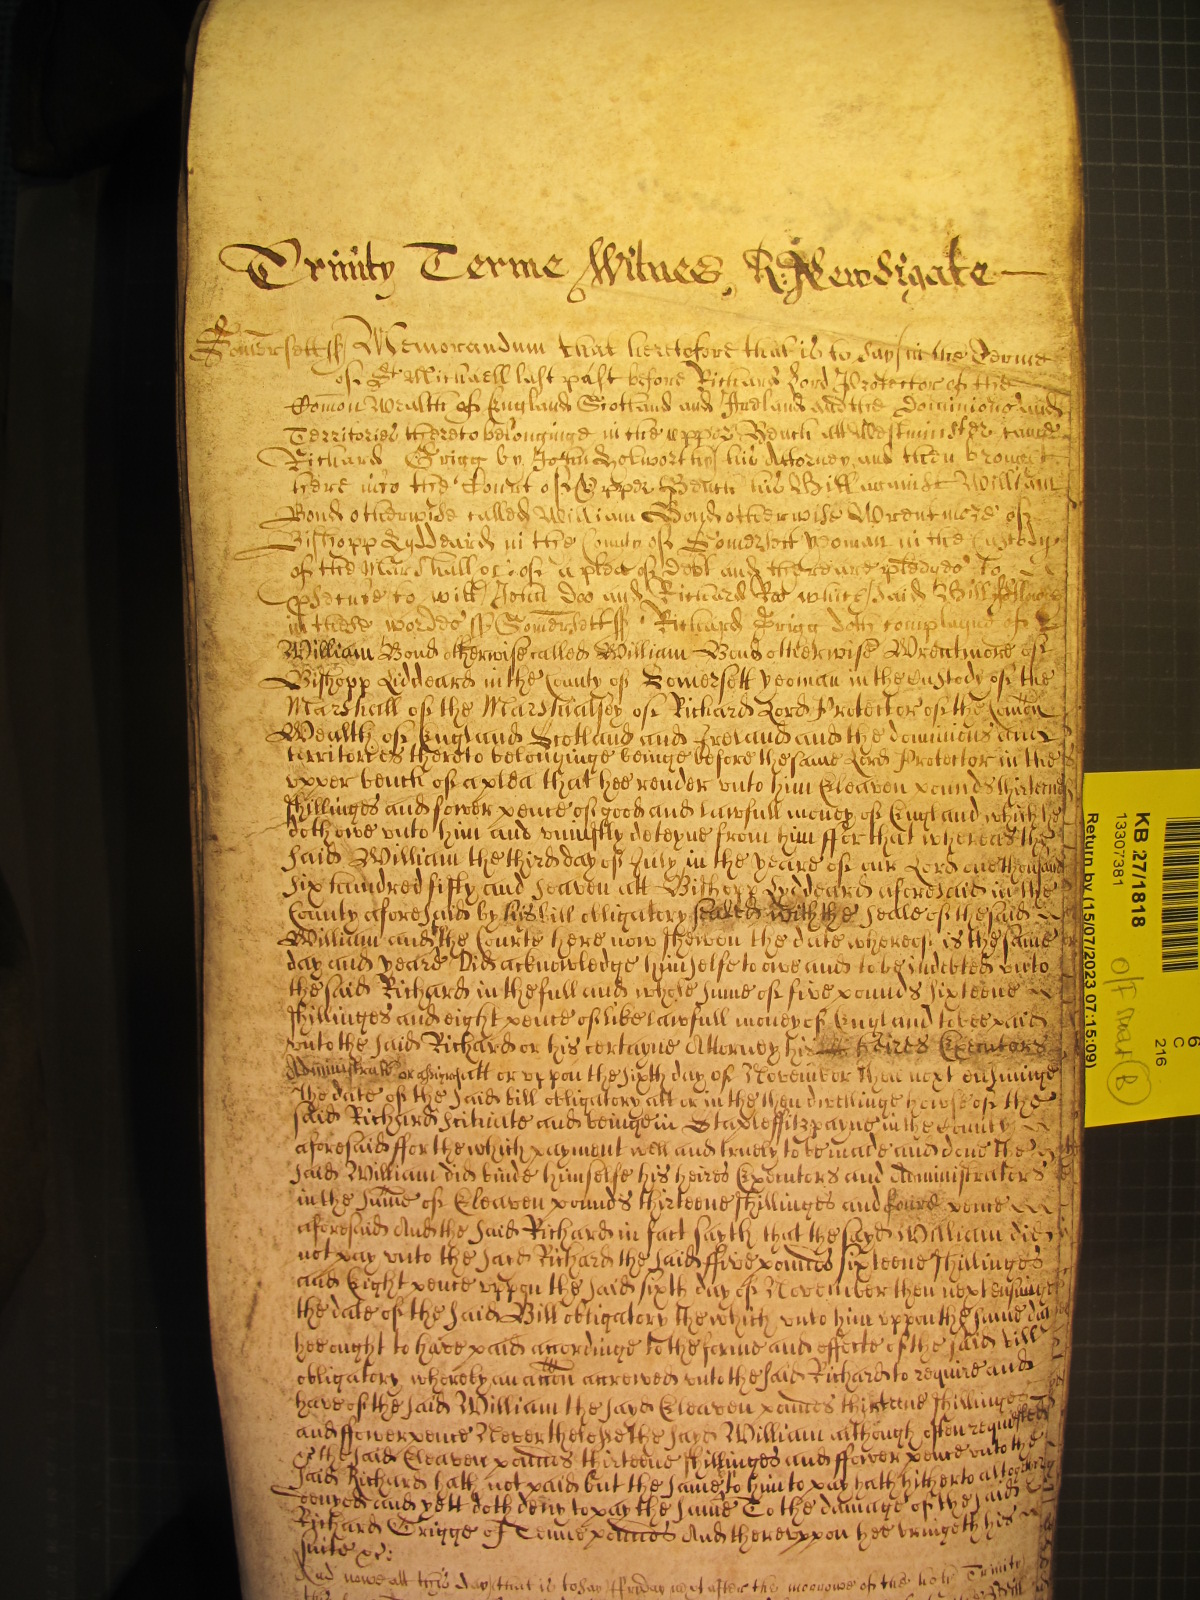 Trinity Terme Witnes R: Newdigate
Somersett ss Memorandum that heretofore that is to say in the Terme
of St Michaell last past before Richard Lord Protector of the
Comon Wealth of England Scotland and Ireland and the Dominions and
Territories thereto belonginge in the upper Bench att Westminster came
Richard Grigg by John his Attorney and then brought
here into the Court of Upper Bench his Bill against William
Bond otherwise called William Bond otherwise Wrentmore of
Bishopp Lyddeard in the County of Somersett yeoman in the Custody
of the Marshall &c: of a plea of Debt and there are pledges to
psecute to witt John Doo and Richard Roo which said Bill followes
in these wordes ss Somersett ss Richard Grigg doth complayne of
William Bond otherwise called William Bond otherwise Wrentmore of
Bishopp Liddeard in the County of Somersett yeoman in the Custody of the
Marshall of the Marshalsey of Richard Lord Protector of the Comon
Wealth of England Scotland and Ireland and the dominions and
territories thereto belonginge beinge before the same Lord Protector in the
upper bench of a plea that hee render unto him Eleaven pounds thirteene
shillinges and fower pence of good and lawfull money of England which he
doth owe unto him and uniustly deteyne from him ffor that whereas the
said William the third day of July in the yeare of our Lord one thousand
six hundred fifty and seaven att Bishopp Lyddeard aforesaid in the
County aforesaid by his bill obligatory sealed with the seale of the said
William and the Courte here now shewen the date whereof is the same
day and yeare Did acknowledge himselfe to owe and to be indebted unto
the said Richard in the full and whole sume of five pounds sixteene
shillinges and eight pence of like lawfull money of England to bee paid
unto the said Richard or his certayne Attorney his heires Executors
Administratrs or assignes att or uppon the sixth day of November then next ensuinge
the date of the said bill obligatory att or in the then dwellinge howse of the
said Richard scituate and beinge in Staple ffitzpayne in the County
aforesaid ffor the which payment well and truely to be made and done the
said William did binde himselfe his heires Executors and Administrators
in the sume of Eleaven pounds thirteene shillinges and foure pence
aforesaid And the said Richard in fact sayth that the sayd William did
not pay unto the sayd Richard the said ffive pounds sixteene shillinges
and Eight pence uppon the said sixth day of November then next ensuinge
the date of the said Bill obligatory the which unto him uppon the same day
hee ought to have paid accordinge to the forme and effecte of the said bill
obligatory whereby an accon accrewed unto the said Richard to require and
have of the said William the sayd Eleaven pounds thirteene shillinges
and ffower pence Neverthelesse the sayd William although often requested
the said Eleaven pounds thirteene shillinges and ffower pence unto the
said Richard hath not paid but the same to him to pay hath hitherto altogether
denyed and yett doth deny to pay the same To the damage of the said
Richard Grigge of Tenne pounds And thereuppon hee bringeth his
suite &c:
And nowe att this day that is to say ffryday next after the morrowe of the holy Trinity
KB 27/1818
13307381
Return by (15/07/2023 07:15:09)
6
C
216